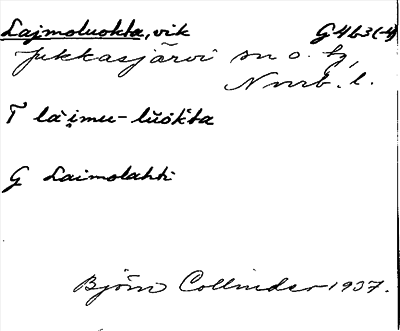 Lajmoluokta, vik G4b3(-4)
Jukkasjärvi sn o. tg,
Nnrb. l.
T lài̯mu-lūòkta
G Laimolahti
Björn Collinder 1937.